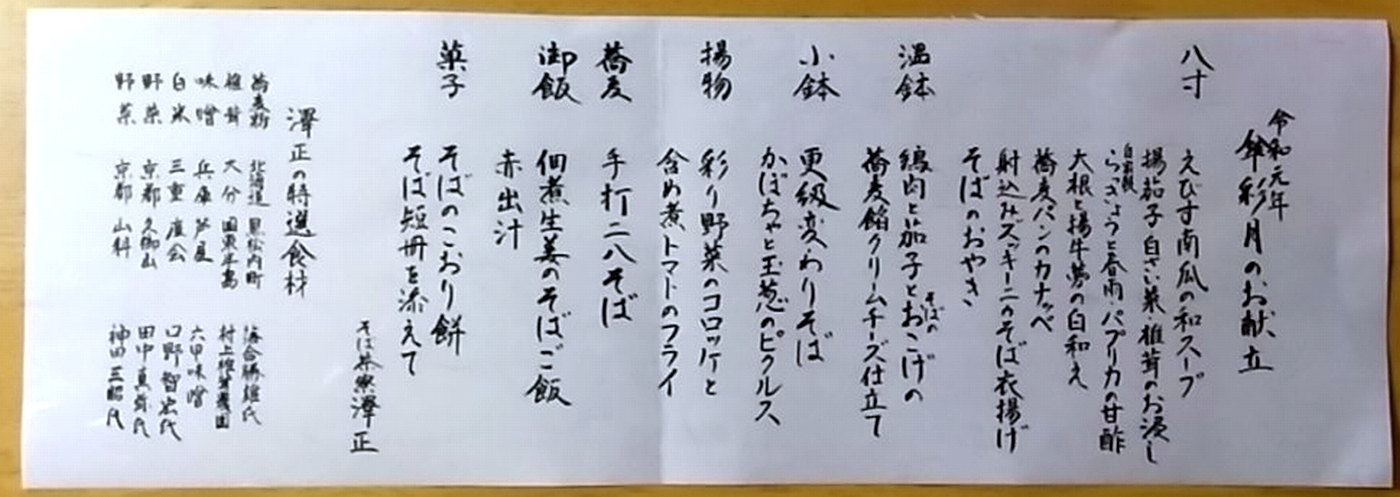 令和元年
傘彩月のお献立
八寸
えびす南瓜の和スープ
揚茄子白ざい菜椎茸のお浸し
自家製
らっきょうと春雨・パプリカの甘酢
大根と揚牛蒡の白和え
蕎麦パンのカナッペ
射込みズッキーニのそば衣揚げ
そばのおやき
温鉢
鶏肉と茄子とそばのおこげの
蕎麦餡クリームチーズ仕立て
小鉢
更級変わりそば
かぼちゃと玉葱のピクルス
揚物
彩り野菜のコロッケと
含め煮トマトのフライ
蕎麦
手打二八そば
御飯
佃煮生姜のそばご飯
赤出汁
菓子
そばのこおり餅
そば短冊を添えて
そば茶寮澤正
澤正の特選食材
蕎麦粉 北海道 黒松内町 落合勝雄氏
椎茸 大分 国東半島 村上椎茸農園
味噌 兵庫 芦屋 六甲味噌
白米 三重 度会 口野智宏氏
野菜 京都 久御山 田中真弥氏
野菜 京都 山科 神田三昭氏